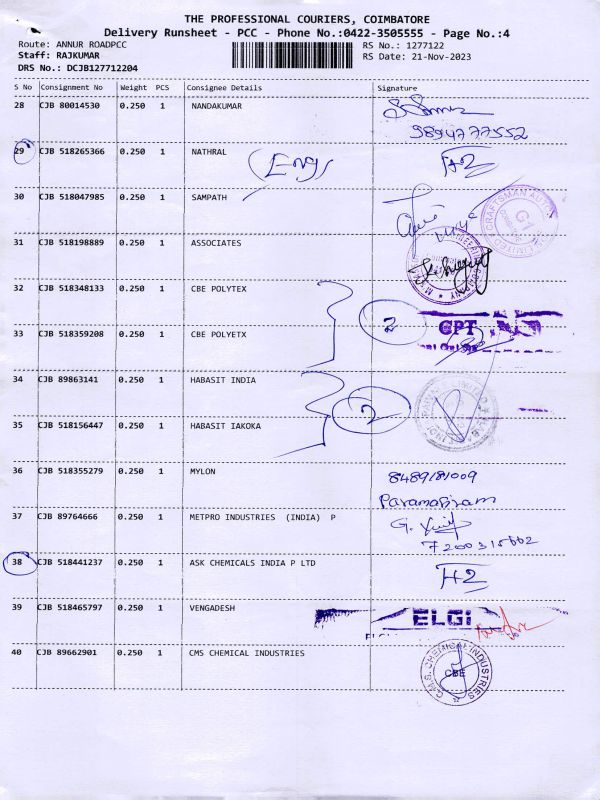 THE PROFESSIONAL COURIERS, COIMBATORE
Delivery Runsheet - PCC - Phone No.:0422-3505555 - Page No.:4
Route: ANNUR ROADPCC RS No.: 1277122
Staff: RAJKUMAR RS Date: 21-Nov-2023
DRS No.: DCJB127712204
S No Consignment No Weight PCS Consignee Details Signature
28 CJB 80014530 0.250 1 NANDAKUMAR
9894777552
29 CJB 518265366 0.250 1 NATHRAL
30 CJB 518047985 0.250 1 SAMPATH
31 CJB 518198889 0.250 1 ASSOCIATES
32 CJB 518348133 0.250 1 CBE POLYTEX
2
CPT
33 CJB 518359208 0.250 1 CBE POLYETX
34 CJB 89863141 0.250 1 HABASIT INDIA
2
35 CJB 518156447 0.250 1 HABASIT IAKOKA
36 CJB 518355279 0.250 1 MYLON 8489181009
37 CJB 89764666 0.250 1 METPRO INDUSTRIES (INDIA) P
38 CJB 518441237 0.250 1 ASK CHEMICALS INDIA P LTD
39 CJB 518465797 0.250 1 VENGADESH ELGI
40 CJB 89662901 0.250 1 CMS CHEMICAL INDUSTRIES
C.M.S. CHEMICAL INDUSTRIES
CBE